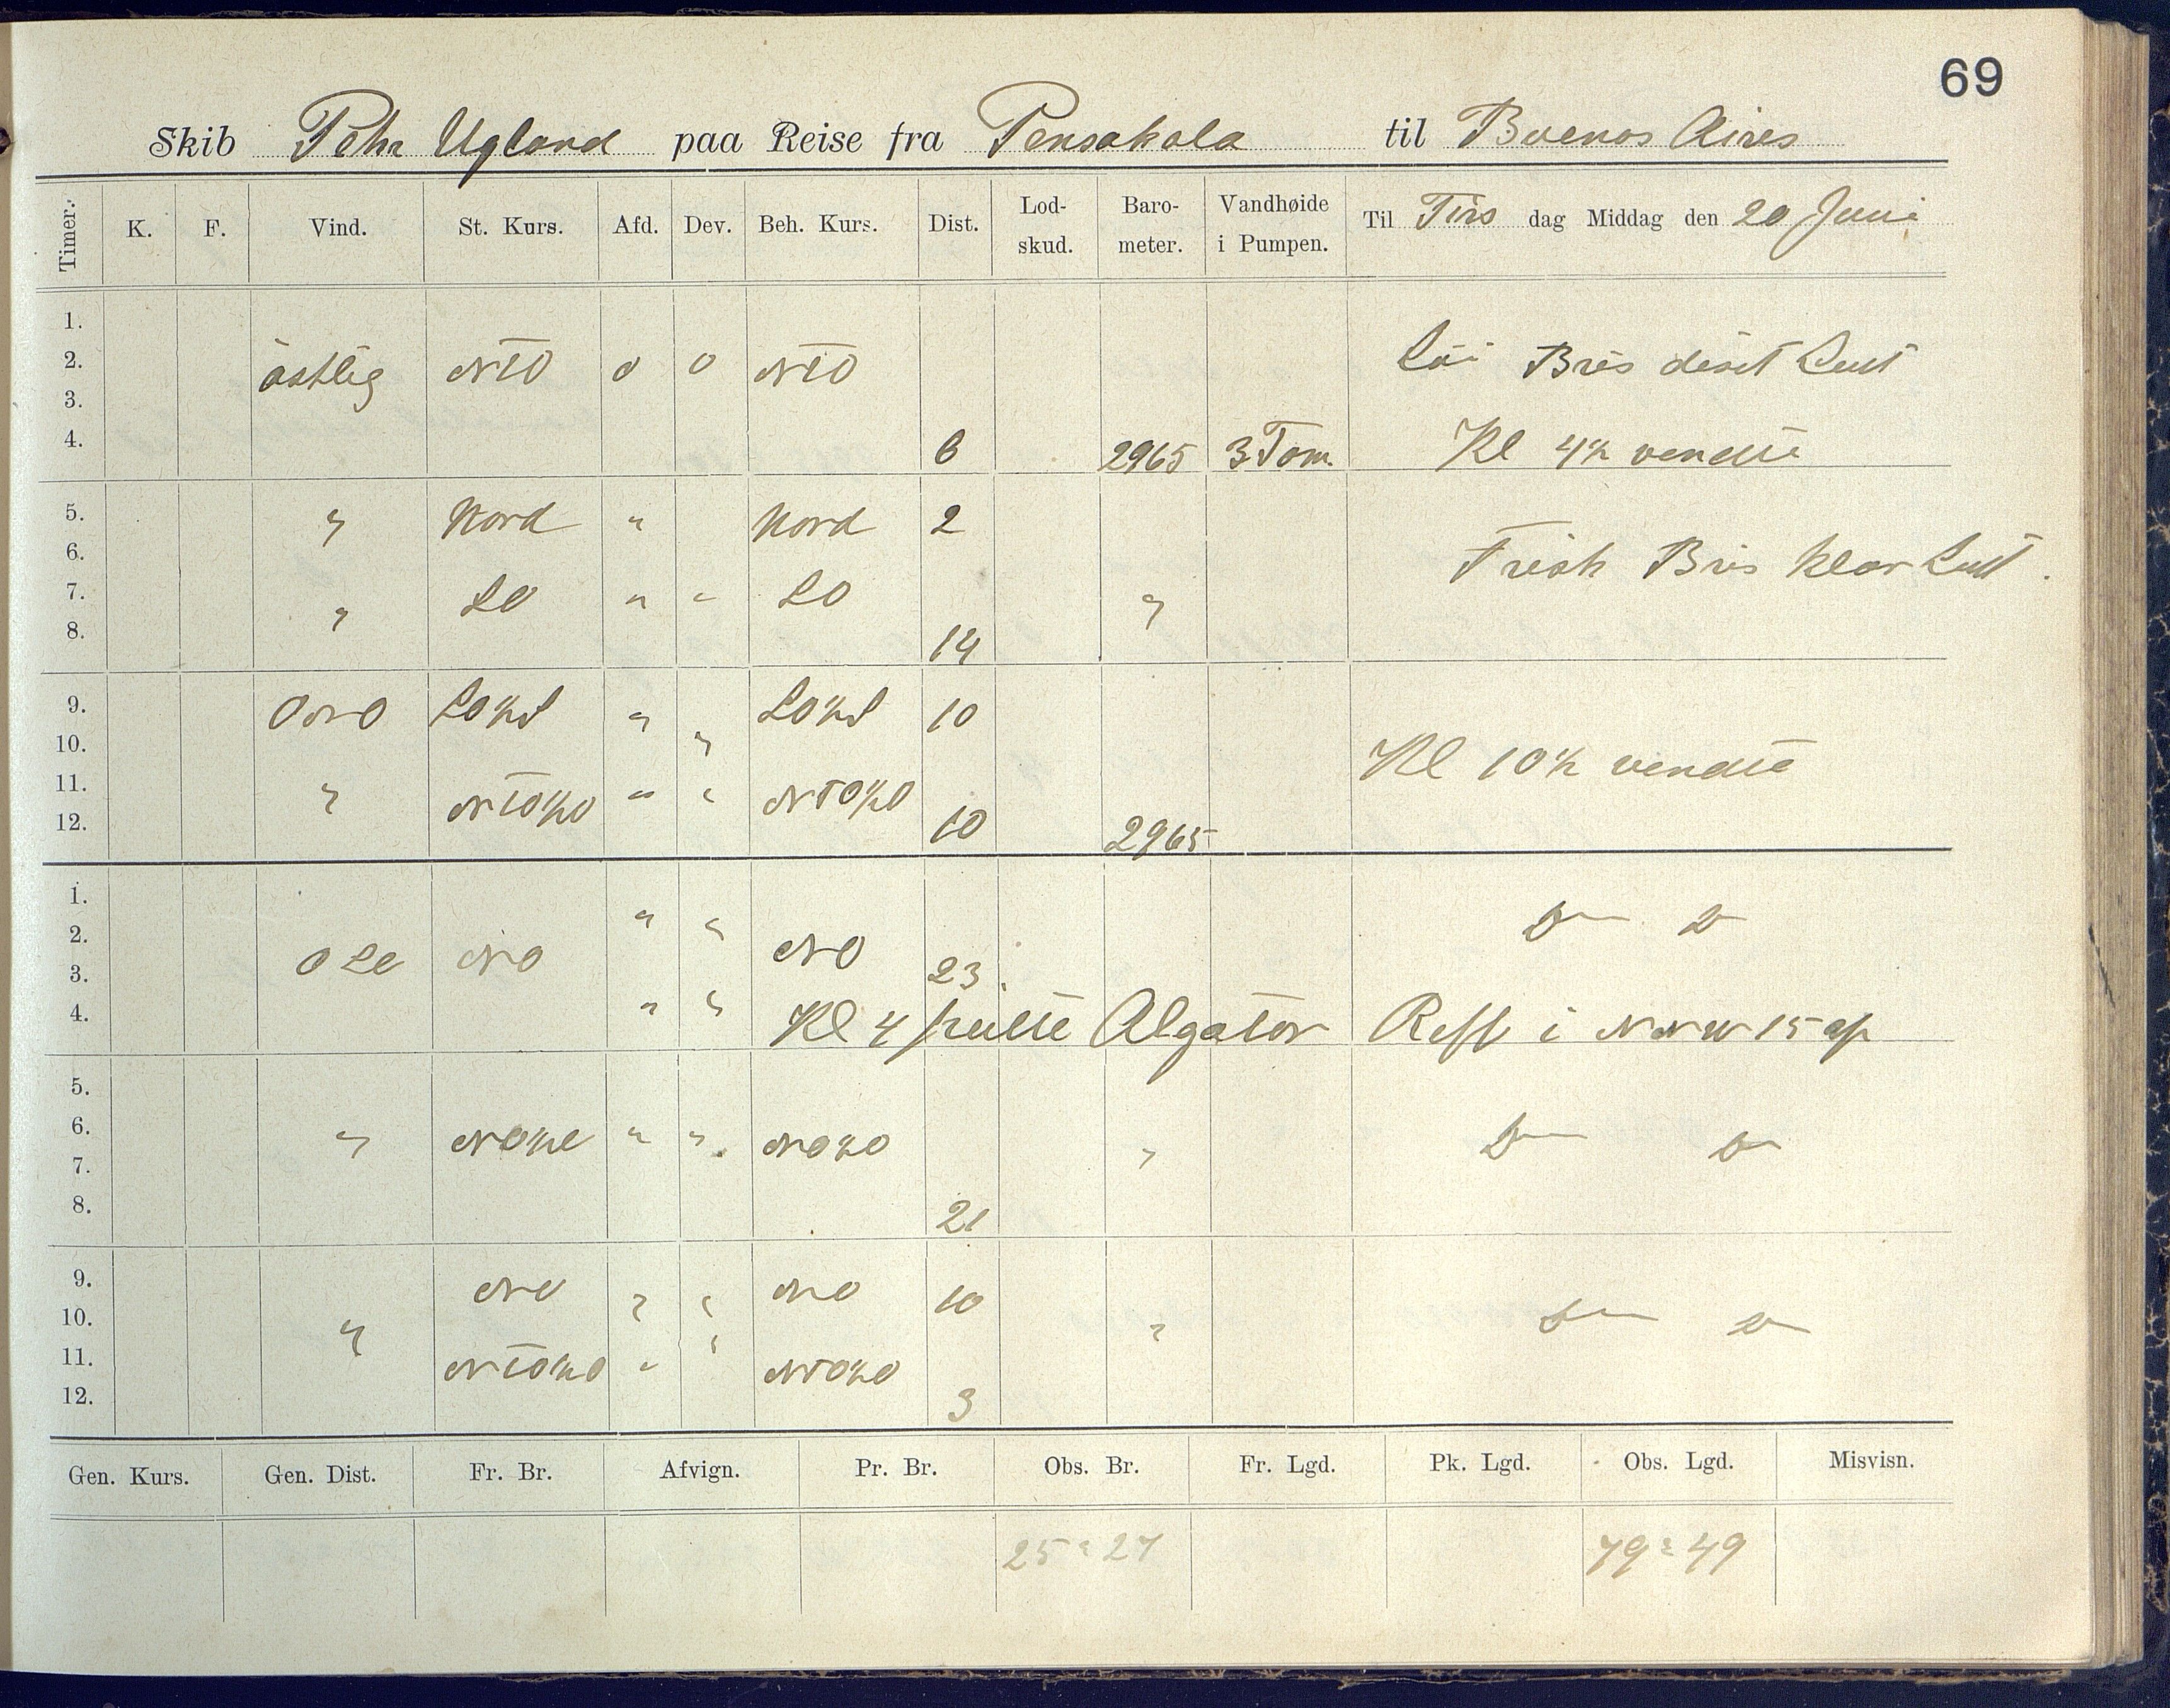 69
Skib Pehr Ugland paa Reise fra Pensakola til Buenos Aires
Timer. K. F. Vind. St. Kurs. Afd. Dev. Beh. Kurs. Dist. Lod-skud. Baro-meter. Vandhøide i Pumpen. Til Tirs dag Middag den 20 Juni
1.
2. östlig NTO 0 0 NTO Löi Bris diset Luft
3.
4. 6 2965 3 Tom. Kl 4½ vendte
5. " Nord " Nord 2
6. Frisk Bris klar Luft.
7. " SO " " SO "
8. 14
9. ONO SO½S " " SO½S 10
10. Kl 10½ vendte
11. " NTO½O " " NTO½O
12. 10 2965
1. " " D D
2. NO NO
3. 23.
4. " " Kl 4 Algator Reff i NNW 15 af
5.
6. " " " NO½O " D D
7.
8. 21
9. NO " " NO 10
10. " " D D
11. NTO½O " " NTO½O
12. 3
Gen. Kurs. Gen. Dist. Fr. Br. Afvign. Pr. Br. Obs. Br. Fr. Lgd. Pk. Lgd. Obs. Lgd. Misvisn.
25=27 79=49